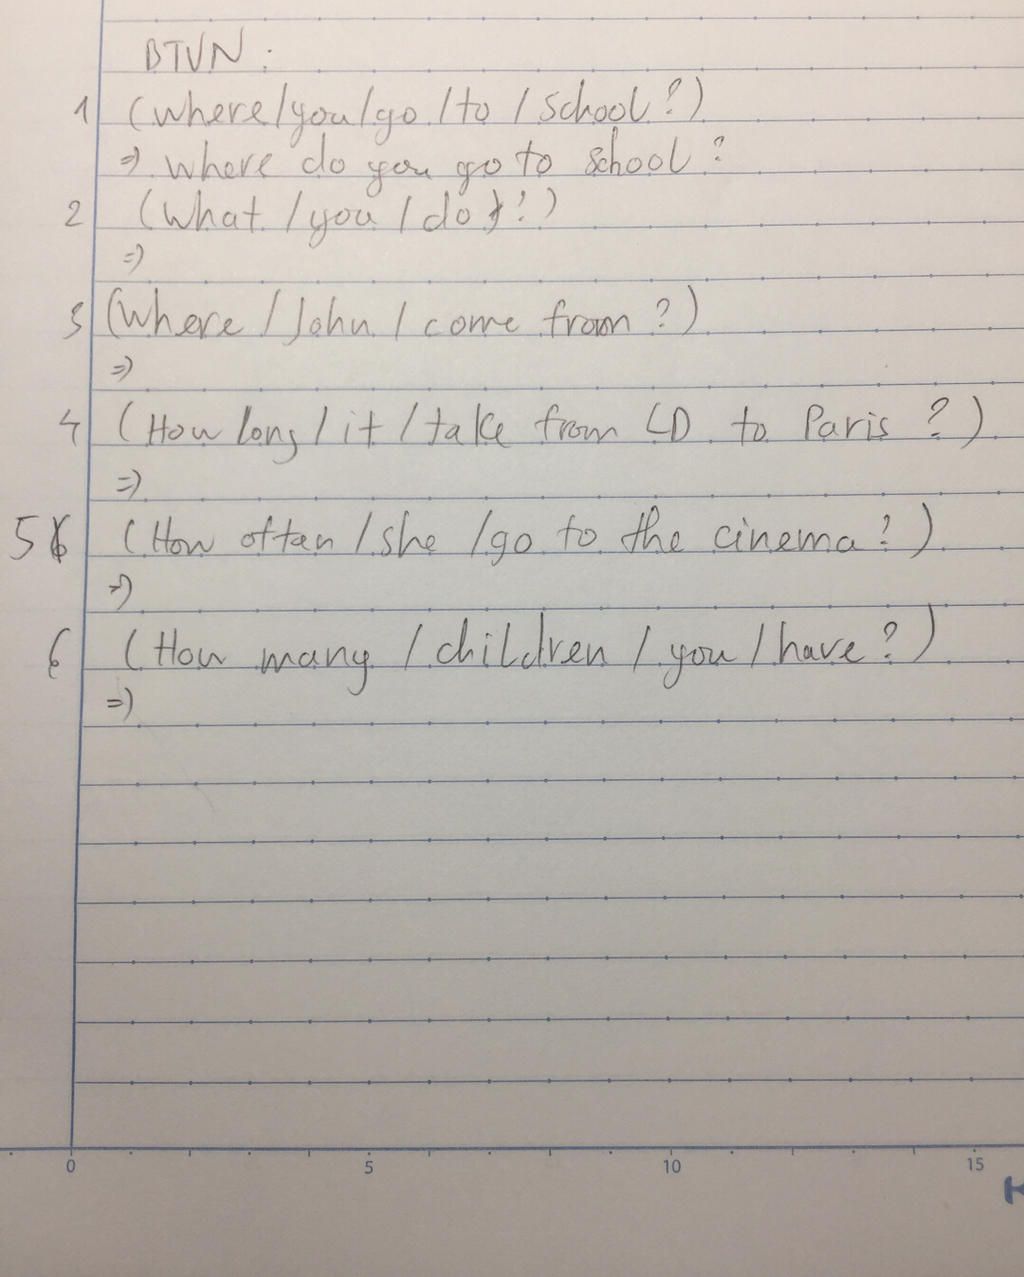 BTVN :
1 (where/you/go/to/school?)
=> where do you go to school?
2 (What/you/do?)
=>
3 (Where/John/come from?)
=>
4 (How long/it/take from LD to Paris?)
=>
5 (How often/she/go to the cinema?)
=>
6 (How many/children/you/have?)
=>
0 5 10 15
K